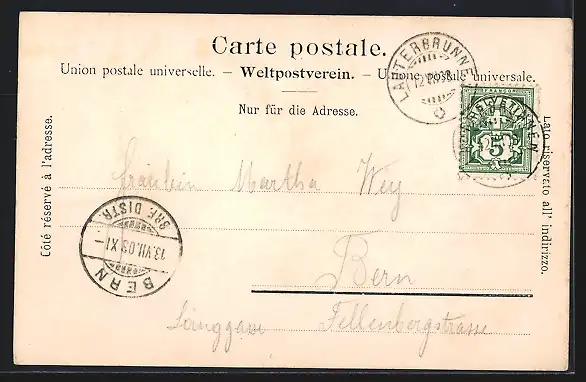 Carte postale.
Union postale universelle. – Weltpostverein. – Unione postale universale.
Nur für die Adresse.
Côté réservé à l'adresse.
Lato riservato all' indirizzo.
LAUTERBRUNNEN
HELVETIA
5
BERN
13.VII.03.XI–
BRE DISTR.
Fräulein Martha Wey
Bern
Länggasse Fellenbergstrasse